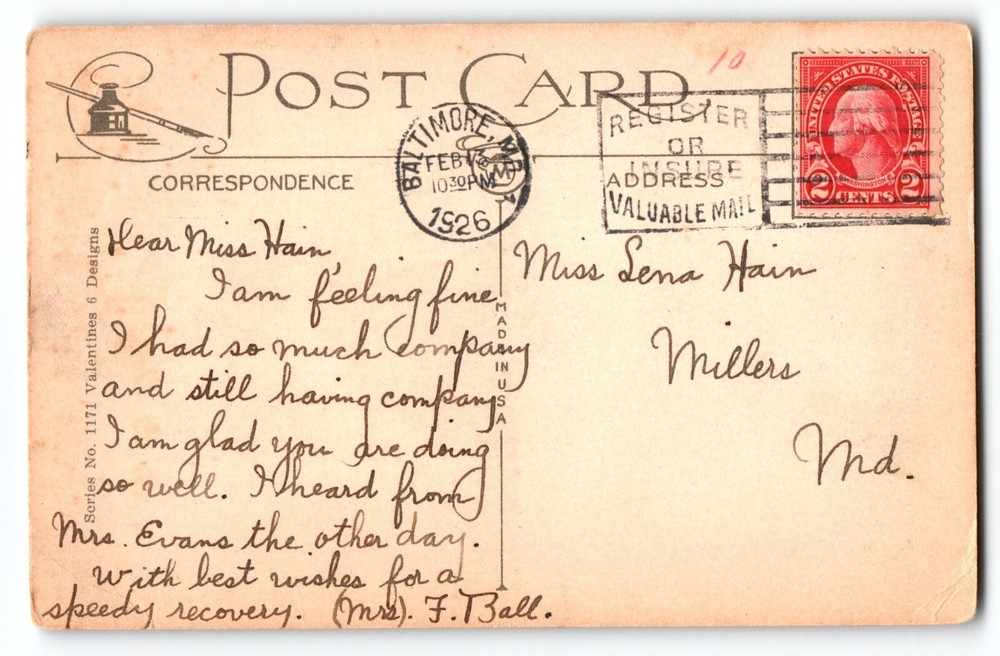 POST CARD
10
BALTIMORE, MD.
FEB 12
10 30 PM
1926
REGISTER
OR
INSURE
VALUABLE MAIL
UNITED STATES POSTAGE
WASHINGTON
2 CENTS 2
CORRESPONDENCE
ADDRESS
Series No. 1171 Valentines 6 Designs
MADE IN USA
Dear Miss Hain,
I am feeling fine
I had so much company
and still having company
I am glad you are doing
so well. I heard from
Mrs. Evans the other day.
with best wishes for a
speedy recovery. (Mrs). F. Ball.
Miss Lena Hain
Millers
Md.